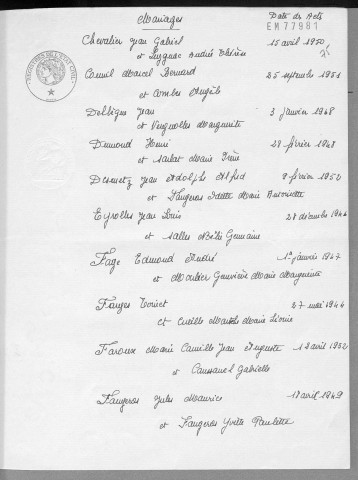 Mariages Date des Actes
EM77981
Chevalier Jean Gabriel 15 avril 1950
et Leyssac André Thérèse
Camil Marcel Bernard 25 septembre 1951
et Combes Angèle
Delbègue Jean 3 janvier 1948
et Vergnolles Marguerite
Dumond Henri 28 février 1948
et Sarlat Marie Irène
Desmetz Jean Adolphe Alfred 9 février 1952
et Faugeras Odette Marie Antoinette
Eyrolles Jean Louis 28 décembre 1946
et Salles Germaine
Fage Edmond André 1er janvier 1947
et Moulier Geneviève Marie Marguerite
Farges 27 mai 1944
et Cueille Marie Léonie
Faroux Marie Camille Jean Auguste 12 avril 1952
et Caussanel Gabrielle
Faugeras Jules Maurice 17 avril 1949
et Faugeras Yvette Paulette